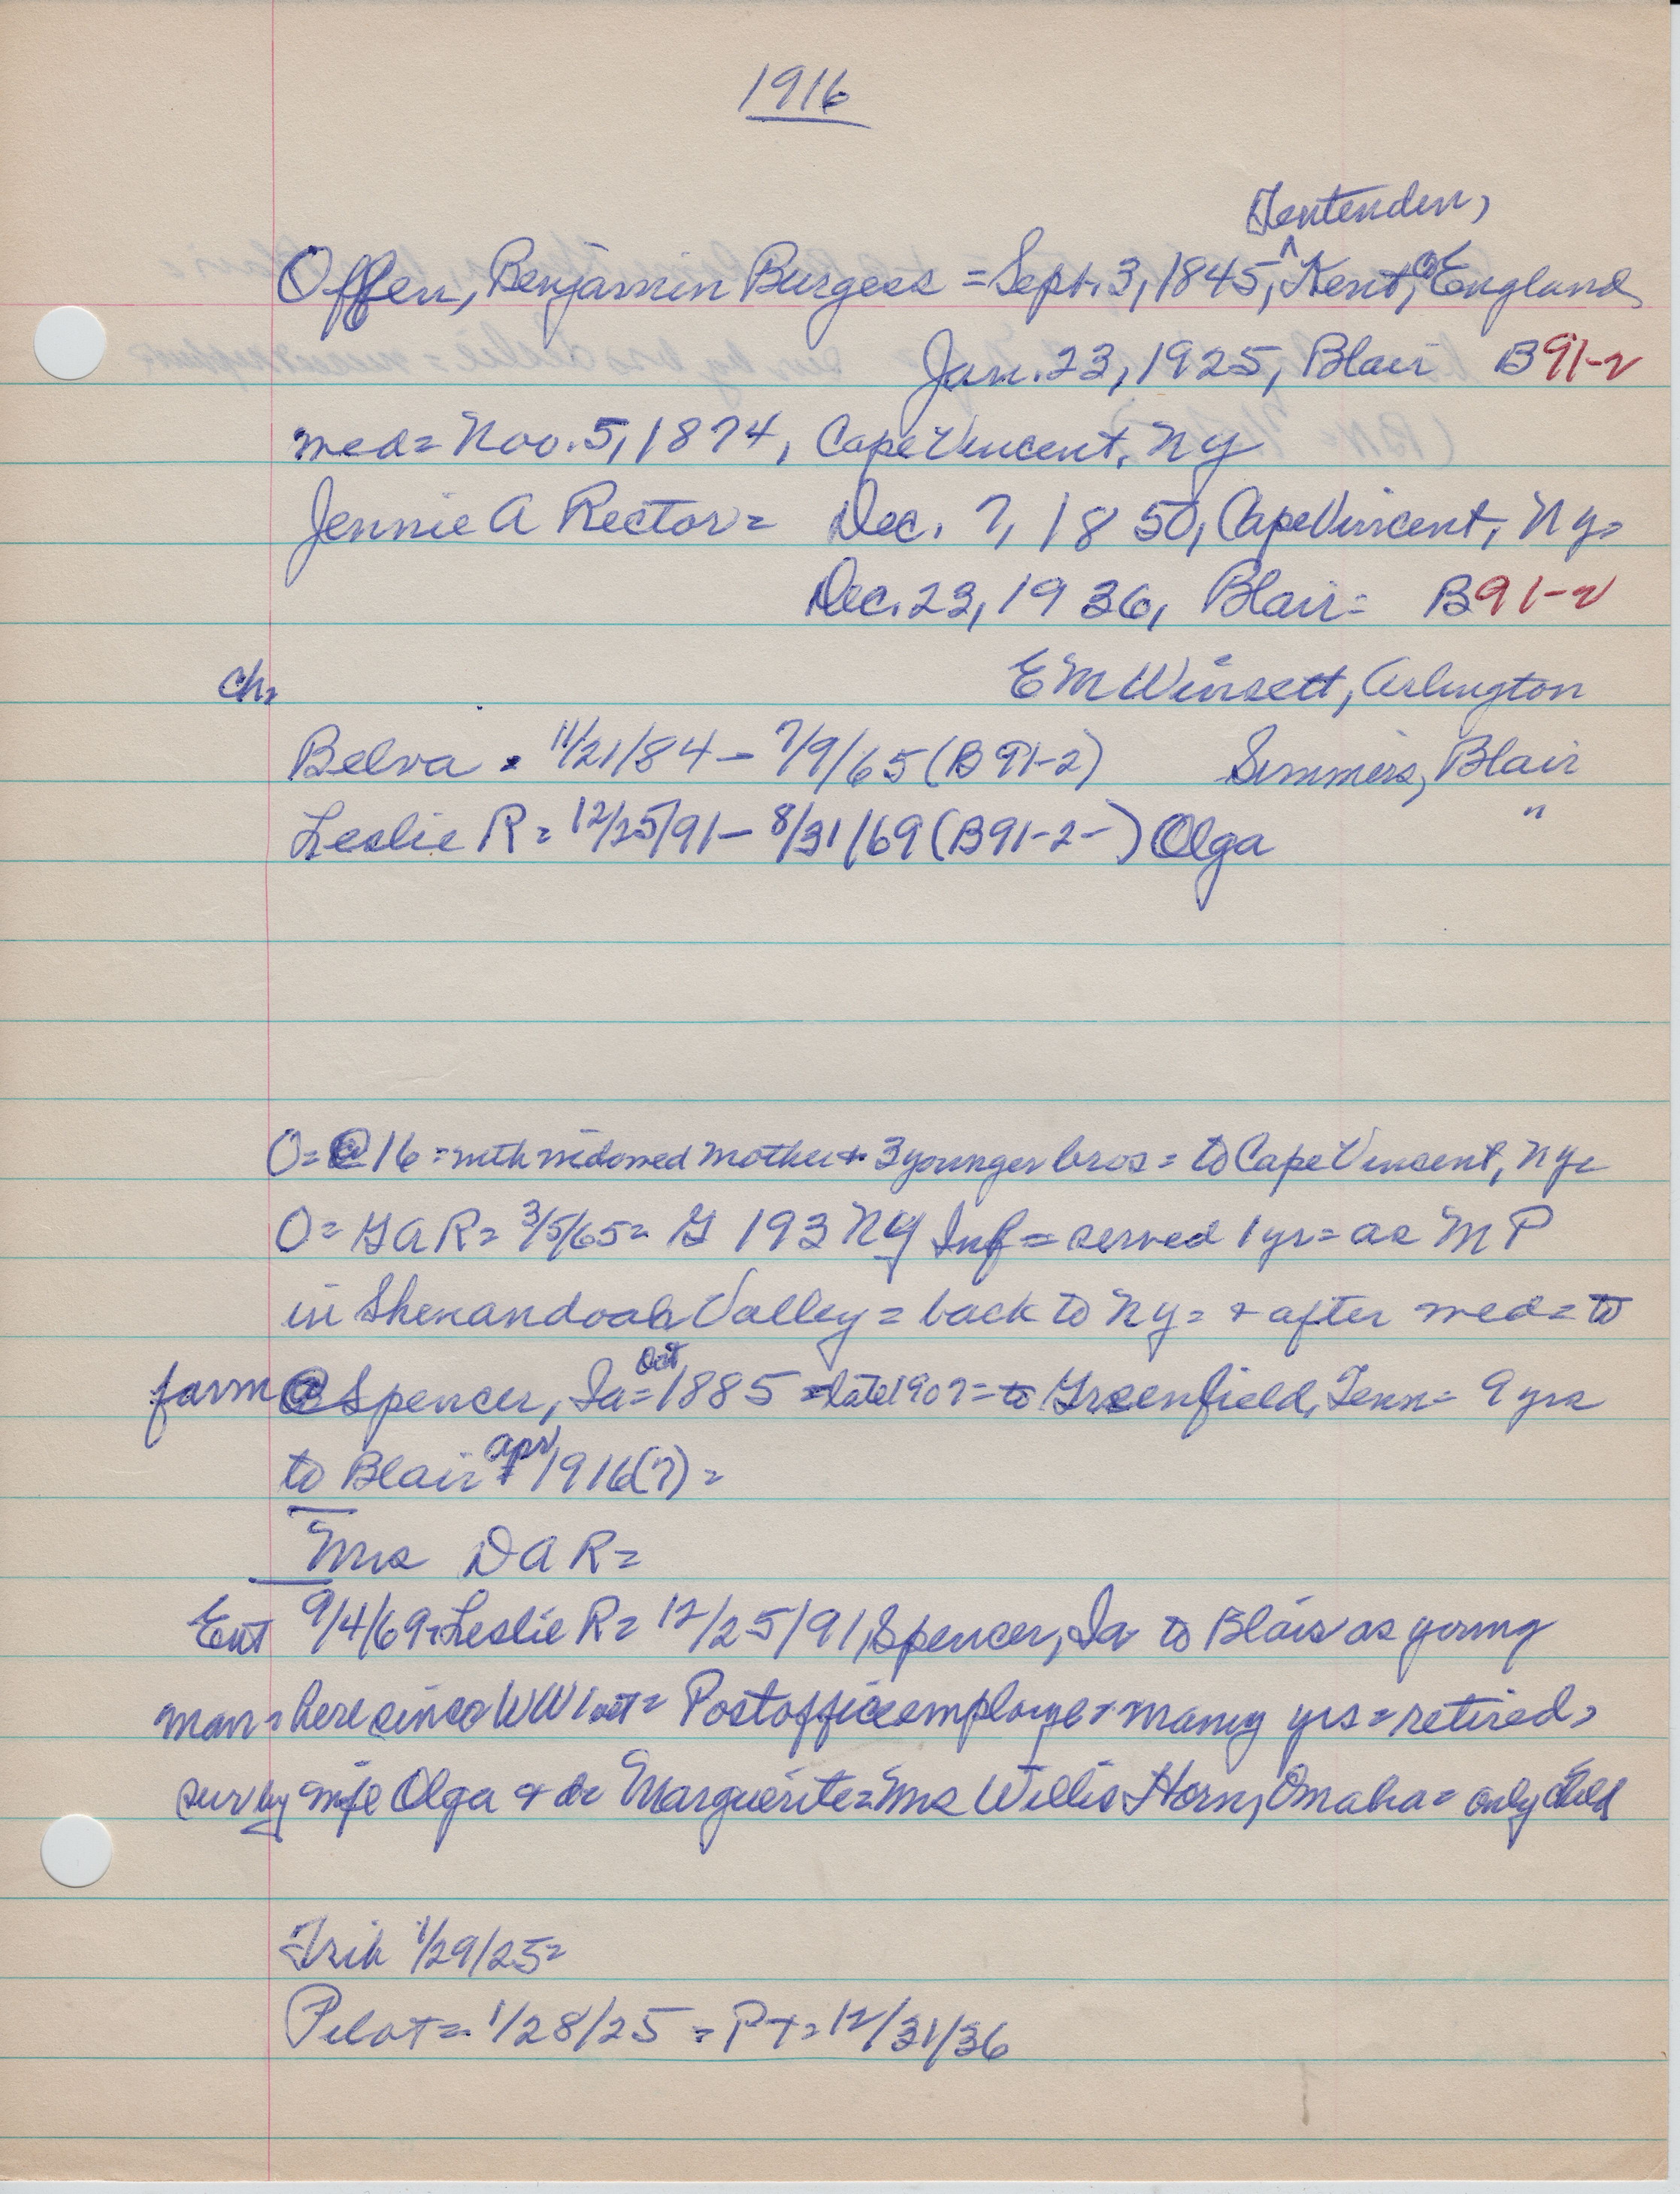 1916
Tentenden,
Offen, Benjamin Burgess = Sept. 3, 1845, ^ Kent, England
Jan. 23, 1925, Blair B91-2
med = Nov. 5, 1874, Cape Vincent, NY
Jennie A Rector = Dec. 7, 1850, Cape Vincent, Ny =
Dec. 23, 1936, Blair = B91-2
ch = E M Winsett, Arlington
Belva = 11/21/84 - 7/9/65 (B91-2) Simmers, Blair
Leslie R = 12/25/91 - 8/31/69 (B91-2-) Olga "
O = @ 16 = with widowed mother + 3 younger bros = to Cape Vincent, Ny =
O = G A R = 3/5/65 = G 193 NY Inf = served 1 yr = as M P
in Shenandoah Valley = back to Ny = + after med = to
farm @ Spencer, Ia = Oct 1885 = late 1907 = to Greenfield, Tenn = 9 yrs
to Blair Apr 1916(7) =
Mrs D A R =
Ent 9/4/69 = Leslie R = 12/25/91, Spencer, Ia to Blair as young
man = here since WW1 = Postoffice employe = many yrs = retired =
sur by wife Olga + da Marguerite = Mrs Willis Horn, Omaha = only child
Trib 1/29/25 =
Pilot = 1/28/25 = PT = 12/31/36